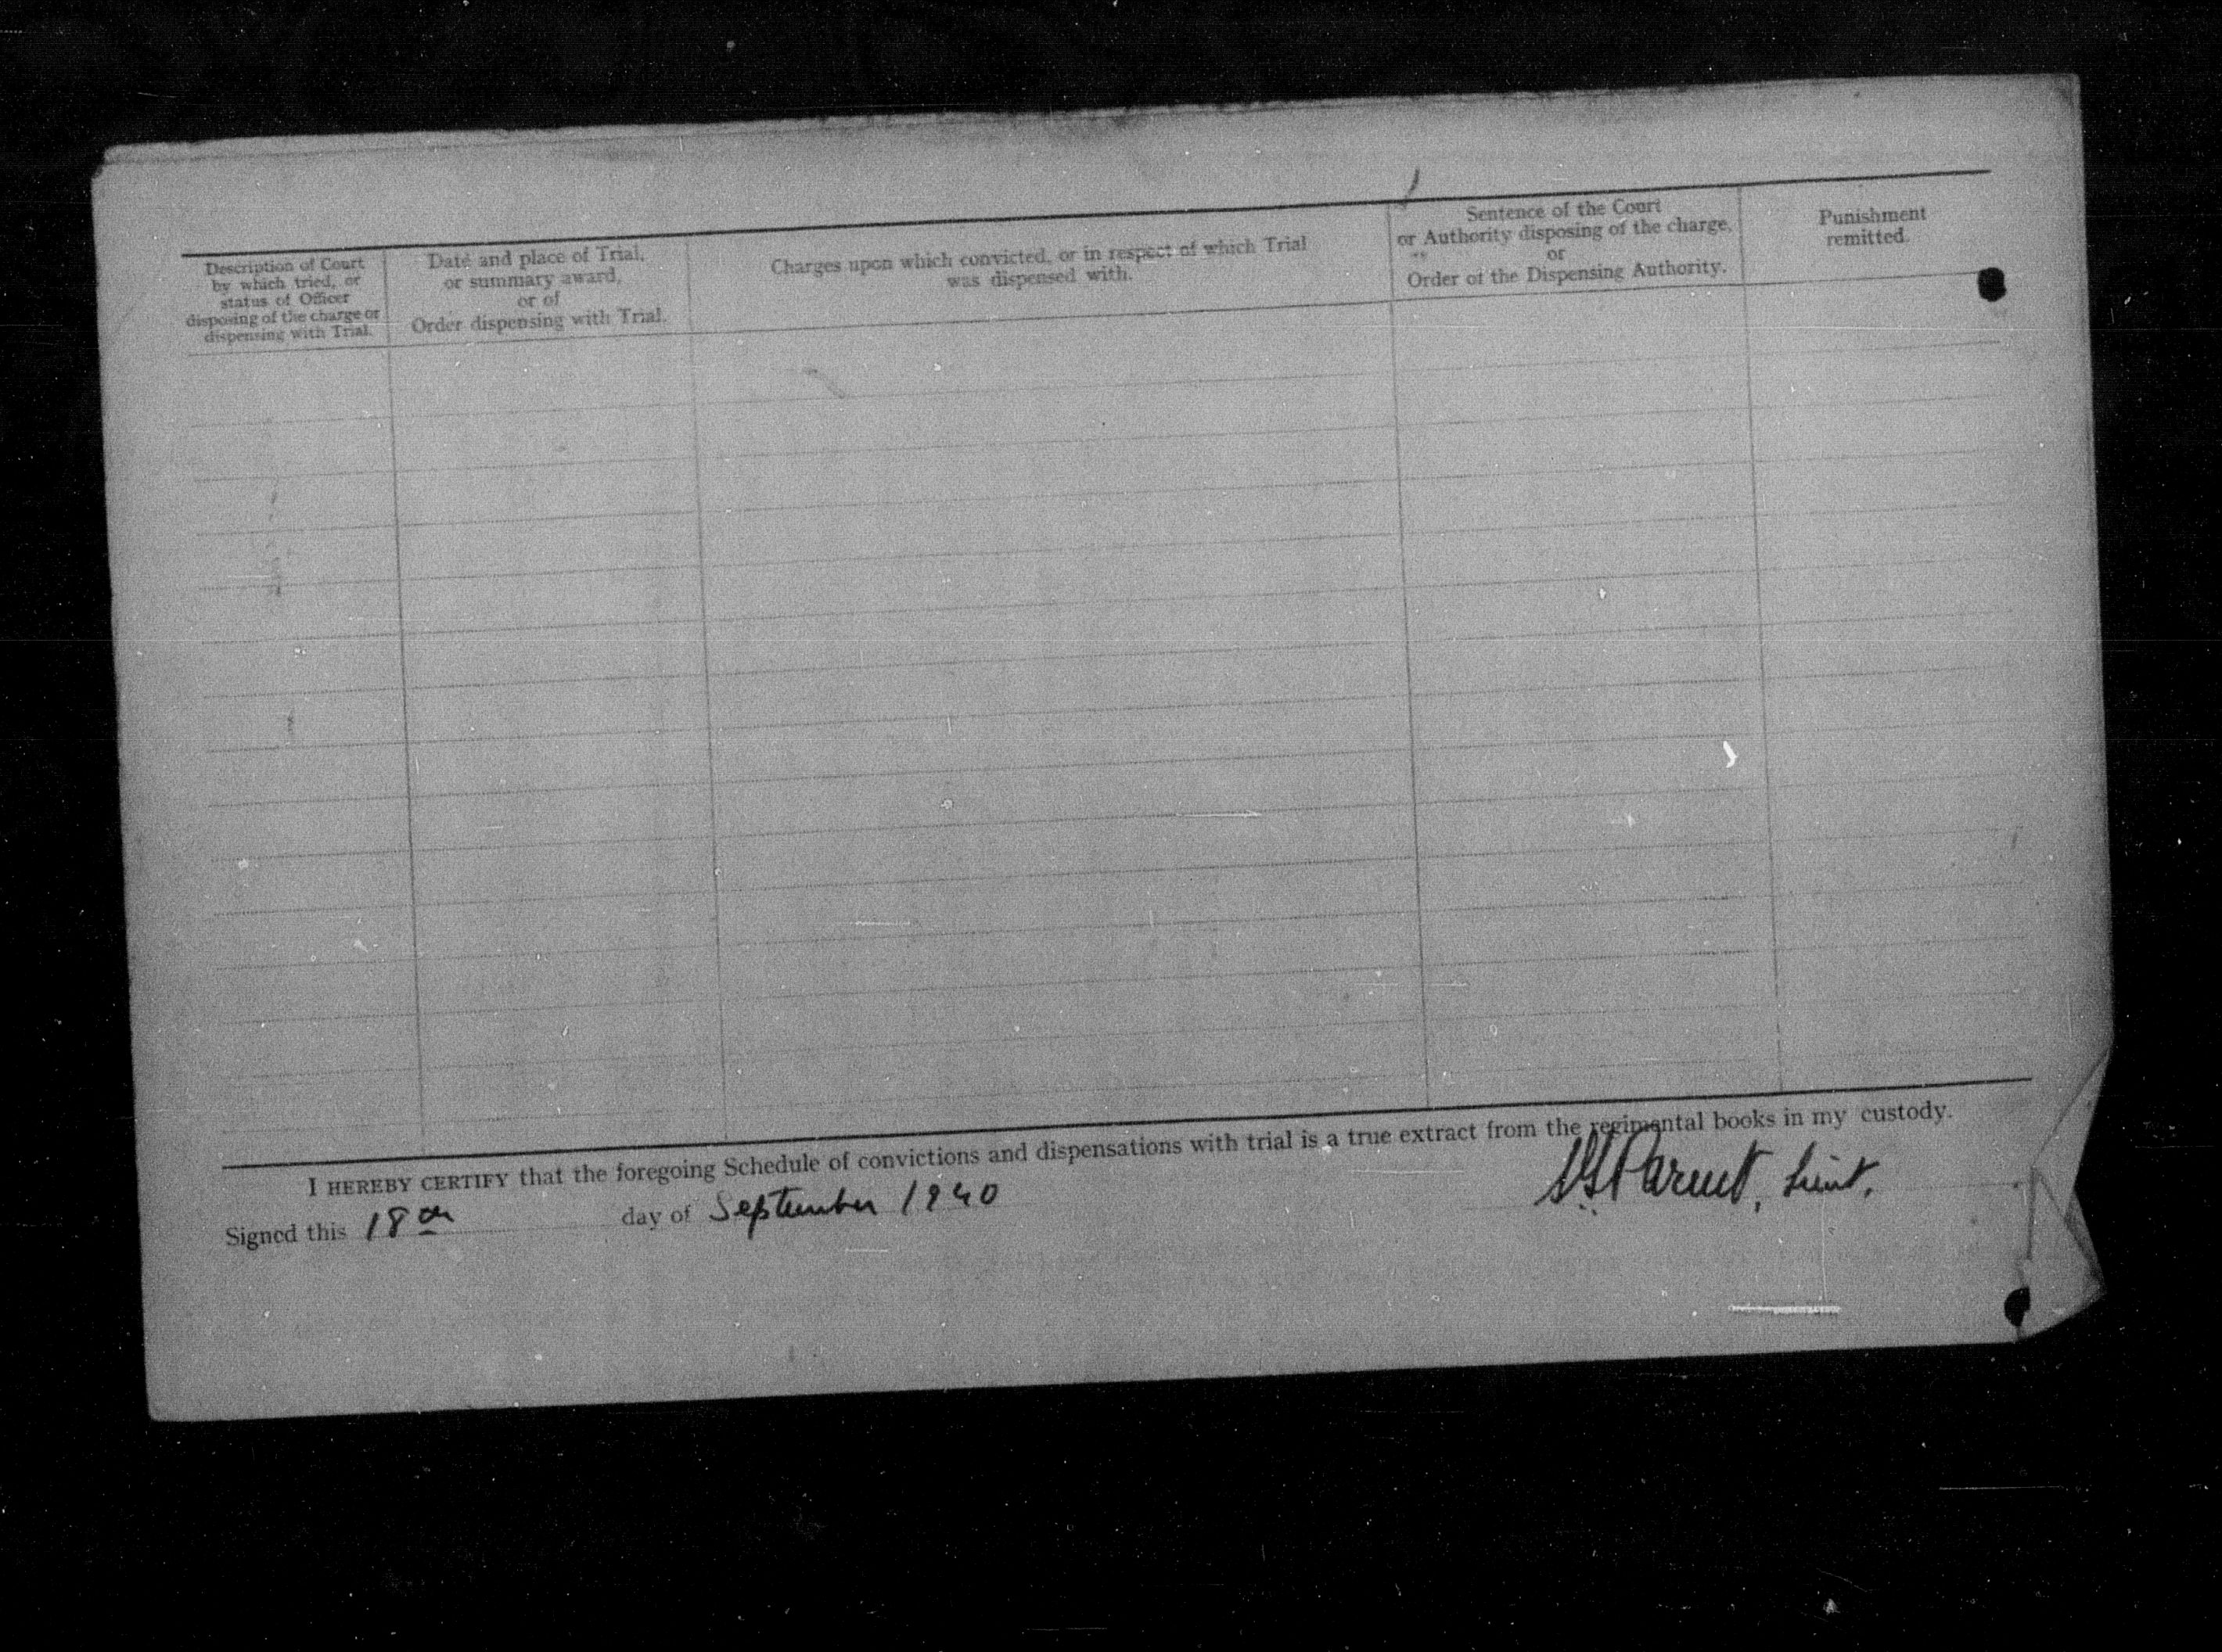 Description of Court
by which tried, or
status of Officer
disposing of the charge or
dispensing with Trial.
Date and place of Trial,
or summary award,
or of
Order dispensing with Trial.
Charges upon which convicted, or in respect of which Trial
was dispensed with.
Sentence of the Court
or Authority disposing of the charge,
or
Order of the Dispensing Authority.
Punishment
remitted.
I HEREBY CERTIFY that the foregoing Schedule of convictions and dispensations with trial is a true extract from the regimental books in my custody.
Signed this 18th day of September 1940
Parent, Lieut.